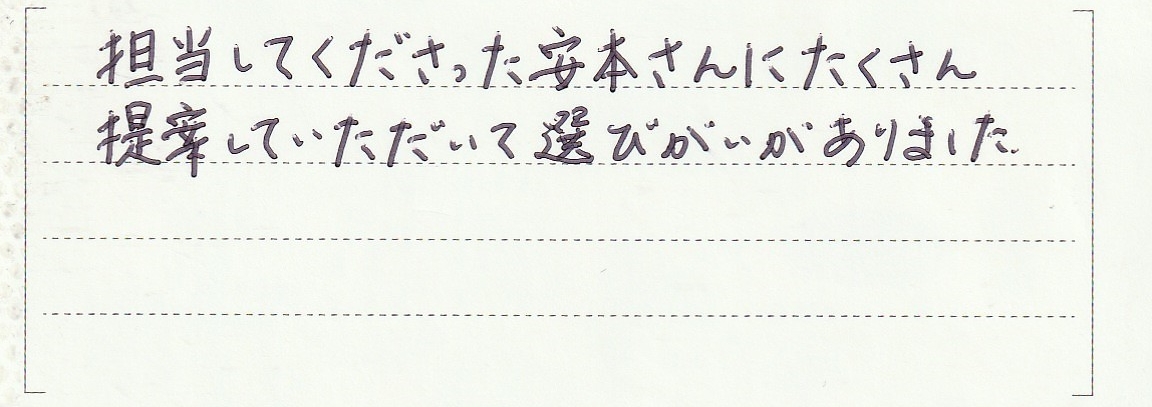 担当してくださった安本さんにたくさん
提案していただいて選びがいがありました.